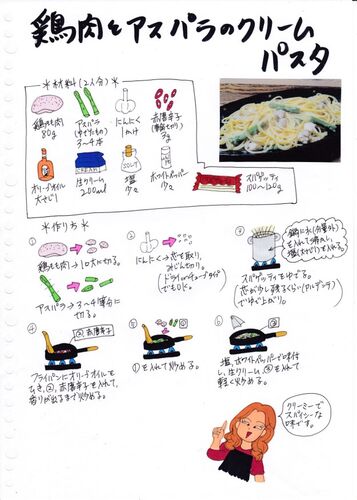 鶏肉とアスパラのクリーム
パスタ
*材料(2人分)*
鶏もも肉
80g
アスパラ
(ゆでたもの)
3〜4本
にんにく
1かけ
赤唐辛子
(輪切り)
3g
オリーブオイル
大さじ1
CREAM
生クリーム
200ml
SOLT
塩
少々
ホワイトペッパー
少々
スパゲッティ
100〜120g
*作り方*
①
鶏もも肉→1口大に切る。
アスパラ→3〜4等分に
切る。
②
にんにく→芯を取り、
みじん切り。
(ドライ
でもOK。
③
鍋に水(分量外)
を入れて沸かし、
塩(大さじ1)を入れる。
スパゲッティをゆでる。
(芯が少し残るくらい(アルデンテ)
でゆで上がり)。
④
②赤唐辛子
フライパンにオリーブオイルを
ひき、②、赤唐辛子を入れて、
香りが出るまで炒める。
⑤
①を入れて炒める。
⑥
塩、ホワイトペッパーで味付
し、生クリーム、③を入れて
軽く炒める。
クリーミーで
スパイシーな
味です。